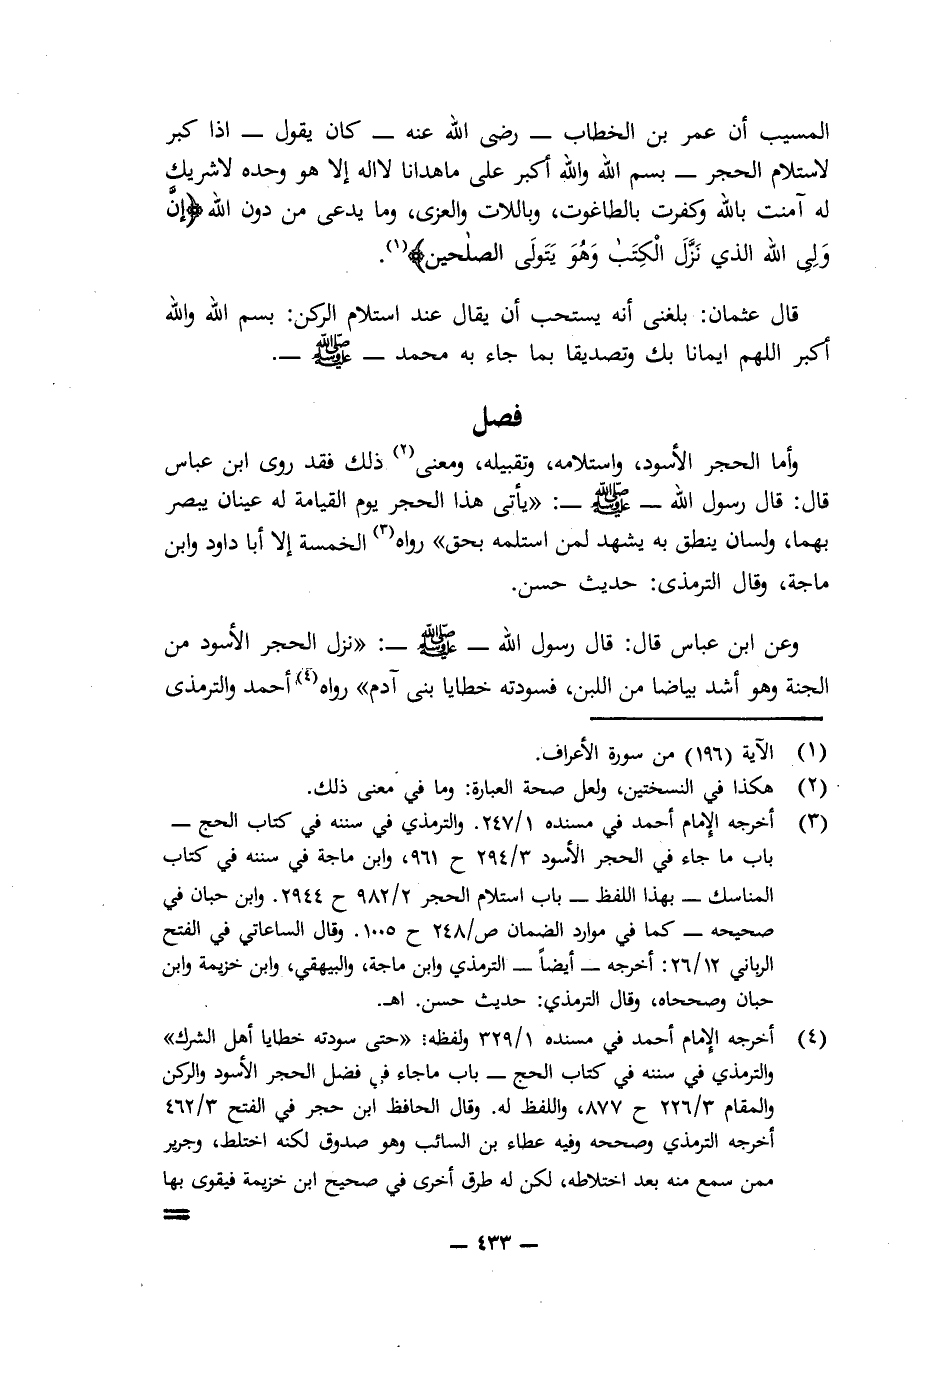 المسيب أن عمر بن الخطاب ـ رضى الله عنه ـ كان يقول ـ اذا كبر
لاستلام الحجر ـ بسم الله والله أكبر على ماهدانا لااله إلا هو وحده لاشريك
له آمنت بالله وكفرت بالطاغوت، وباللات والعزى، وما يدعى من دون الله ﴿إنَّ
وَلِي الله الذي نَزَّلَ الْكِتَبٰ وَهُوَ يَتَولَى الصلٰحين﴾(١).
قال عثمان: بلغنى أنه يستحب أن يقال عند استلام الركن: بسم الله والله
أكبر اللهم ايمانا بك وتصديقا بما جاء به محمد ـ ﷺ ـ.
فصل
وأما الحجر الأسود، واستلامه، وتقبيله، ومعنى(٢) ذلك فقد روى ابن عباس
قال: قال رسول الله ـ ﷺ ـ: «يأتى هذا الحجر يوم القيامة له عينان يبصر
بهما، ولسان ينطق به يشهد لمن استلمه بحق» رواه(٣) الخمسة إلا أبا داود وابن
ماجة، وقال الترمذى: حديث حسن.
وعن ابن عباس قال: قال رسول الله ـ ﷺ ـ: «نزل الحجر الأسود من
الجنة وهو أشد بياضا من اللبن، فسودته خطايا بنى آدم» رواه(٤) أحمد والترمذى
(١) الآية (١٩٦) من سورة الأعراف.
(٢) هكذا في النسختين، ولعل صحة العبارة: وما في معنى ذلك.
(٣) أخرجه الإمام أحمد في مسنده ٢٤٧/١. والترمذي في سننه في كتاب الحج ـ
باب ما جاء في الحجر الأسود ٢٩٤/٣ ح ٩٦١، وابن ماجة في سننه في كتاب
المناسك ـ بهذا اللفظ ـ باب استلام الحجر ٩٨٢/٢ ح ٢٩٤٤. وابن حبان في
صحيحه ـ كما في موارد الضمان ص/٢٤٨ ح ١٠٠٥. وقال الساعاتي في الفتح
الرباني ٢٦/١٢: أخرجه ـ أيضاً ـ الترمذي وابن ماجة، والبيهقي، وابن خزيمة وابن
حبان وصححاه، وقال الترمذي: حديث حسن. اهـ.
(٤) أخرجه الإمام أحمد في مسنده ٣٢٩/١ ولفظه: «حتى سودته خطايا أهل الشرك»
والترمذي في سننه في كتاب الحج ـ باب ماجاء في فضل الحجر الأسود والركن
والمقام ٢٢٦/٣ ح ٨٧٧، واللفظ له. وقال الحافظ ابن حجر في الفتح ٤٦٢/٣
أخرجه الترمذي وصححه وفيه عطاء بن السائب وهو صدوق لكنه اختلط، وجرير
ممن سمع منه بعد اختلاطه، لكن له طرق أخرى في صحيح ابن خزيمة فيقوى بها
=
ـ ٤٣٣ ـ